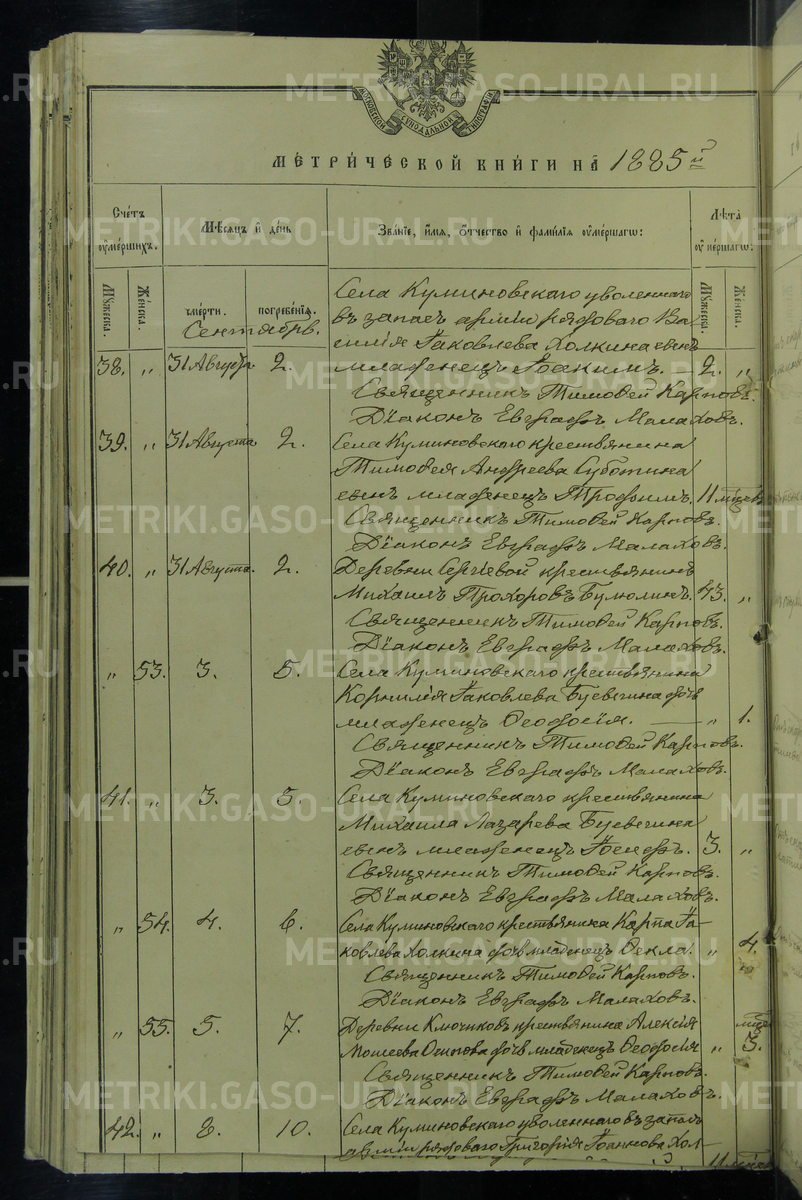 МОСКОВСКОЙ СѴНОДАЛЬНОЙ ТИПОГРАФІИ
МЕТРИЧЕСКОЙ КНИГИ НА 1885й
Счетъ умершихъ.
Мѣсяцъ и день
Званіе, имя, отчество и фамилія умершаго:
Лѣта умершаго:
Мужеска. Женска.
смерти. погребенія.
Мужеска. Женска.
Сентябрь.
Села Куминовскаго уволеннаго
въ запас арміи рядоваго Ва
силія Іаковлева Холкина сынъ
38. „ 31 Августа 2. младенецъ Іоакимъ. 2. „
Священникъ Тимоѳей Карповъ.
Діаконъ Евграфъ Малаховъ.
39. „ 31 Августа 2. Села Куминовскаго крестьянина
Тимоѳея Андреева Суботина
сынъ младенецъ Трофимъ. 11 мцевъ
Священникъ Тимоѳей Карповъ.
Діаконъ Евграфъ Малаховъ.
40. „ 31 Августа. 2. Деревни Сергіевой крестьянинъ
Михаилъ Прохоровъ Бумолинъ. 43. „
Священникъ Тимоѳей Карповъ.
Діаконъ Евграфъ Малаховъ.
„ 53. 3. 5. Села Куминовскаго крестьянина
Корнилія Іаковлева Бувечина дочь
младенецъ Ѳеодосія. „ 1.
Священникъ Тимоѳей Карповъ.
Діаконъ Евграфъ Малаховъ.
41. „ 3. 5. Села Куминовскаго крестьянина
Михаила Лазарева Бувечина
сынъ младенецъ Іосифъ. 3. „
Священникъ Тимоѳей Карповъ.
Діаконъ Евграфъ Малаховъ.
„ 54. 4. 6. Села Куминовскаго крестьянина Карпа Іа-
ковлева Холкина дочь младенецъ Ѳекла. „ 4.
Священникъ Тимоѳей Карповъ.
Діаконъ Евграфъ Малаховъ.
„ 55. 5. 7. Деревни Ключиковъ крестьянина Алексія
Моисеева Осипова дочь младенецъ Ѳеодосія „ 3.
Священникъ Тимоѳей Карповъ.
Діаконъ Евграфъ Малаховъ.
42. „ 8. 10. Села Куминовскаго уволеннаго въ запасъ
арміи рядоваго Григорія Іоаннова Хол-
METRIKI.GASO-URAL.RU